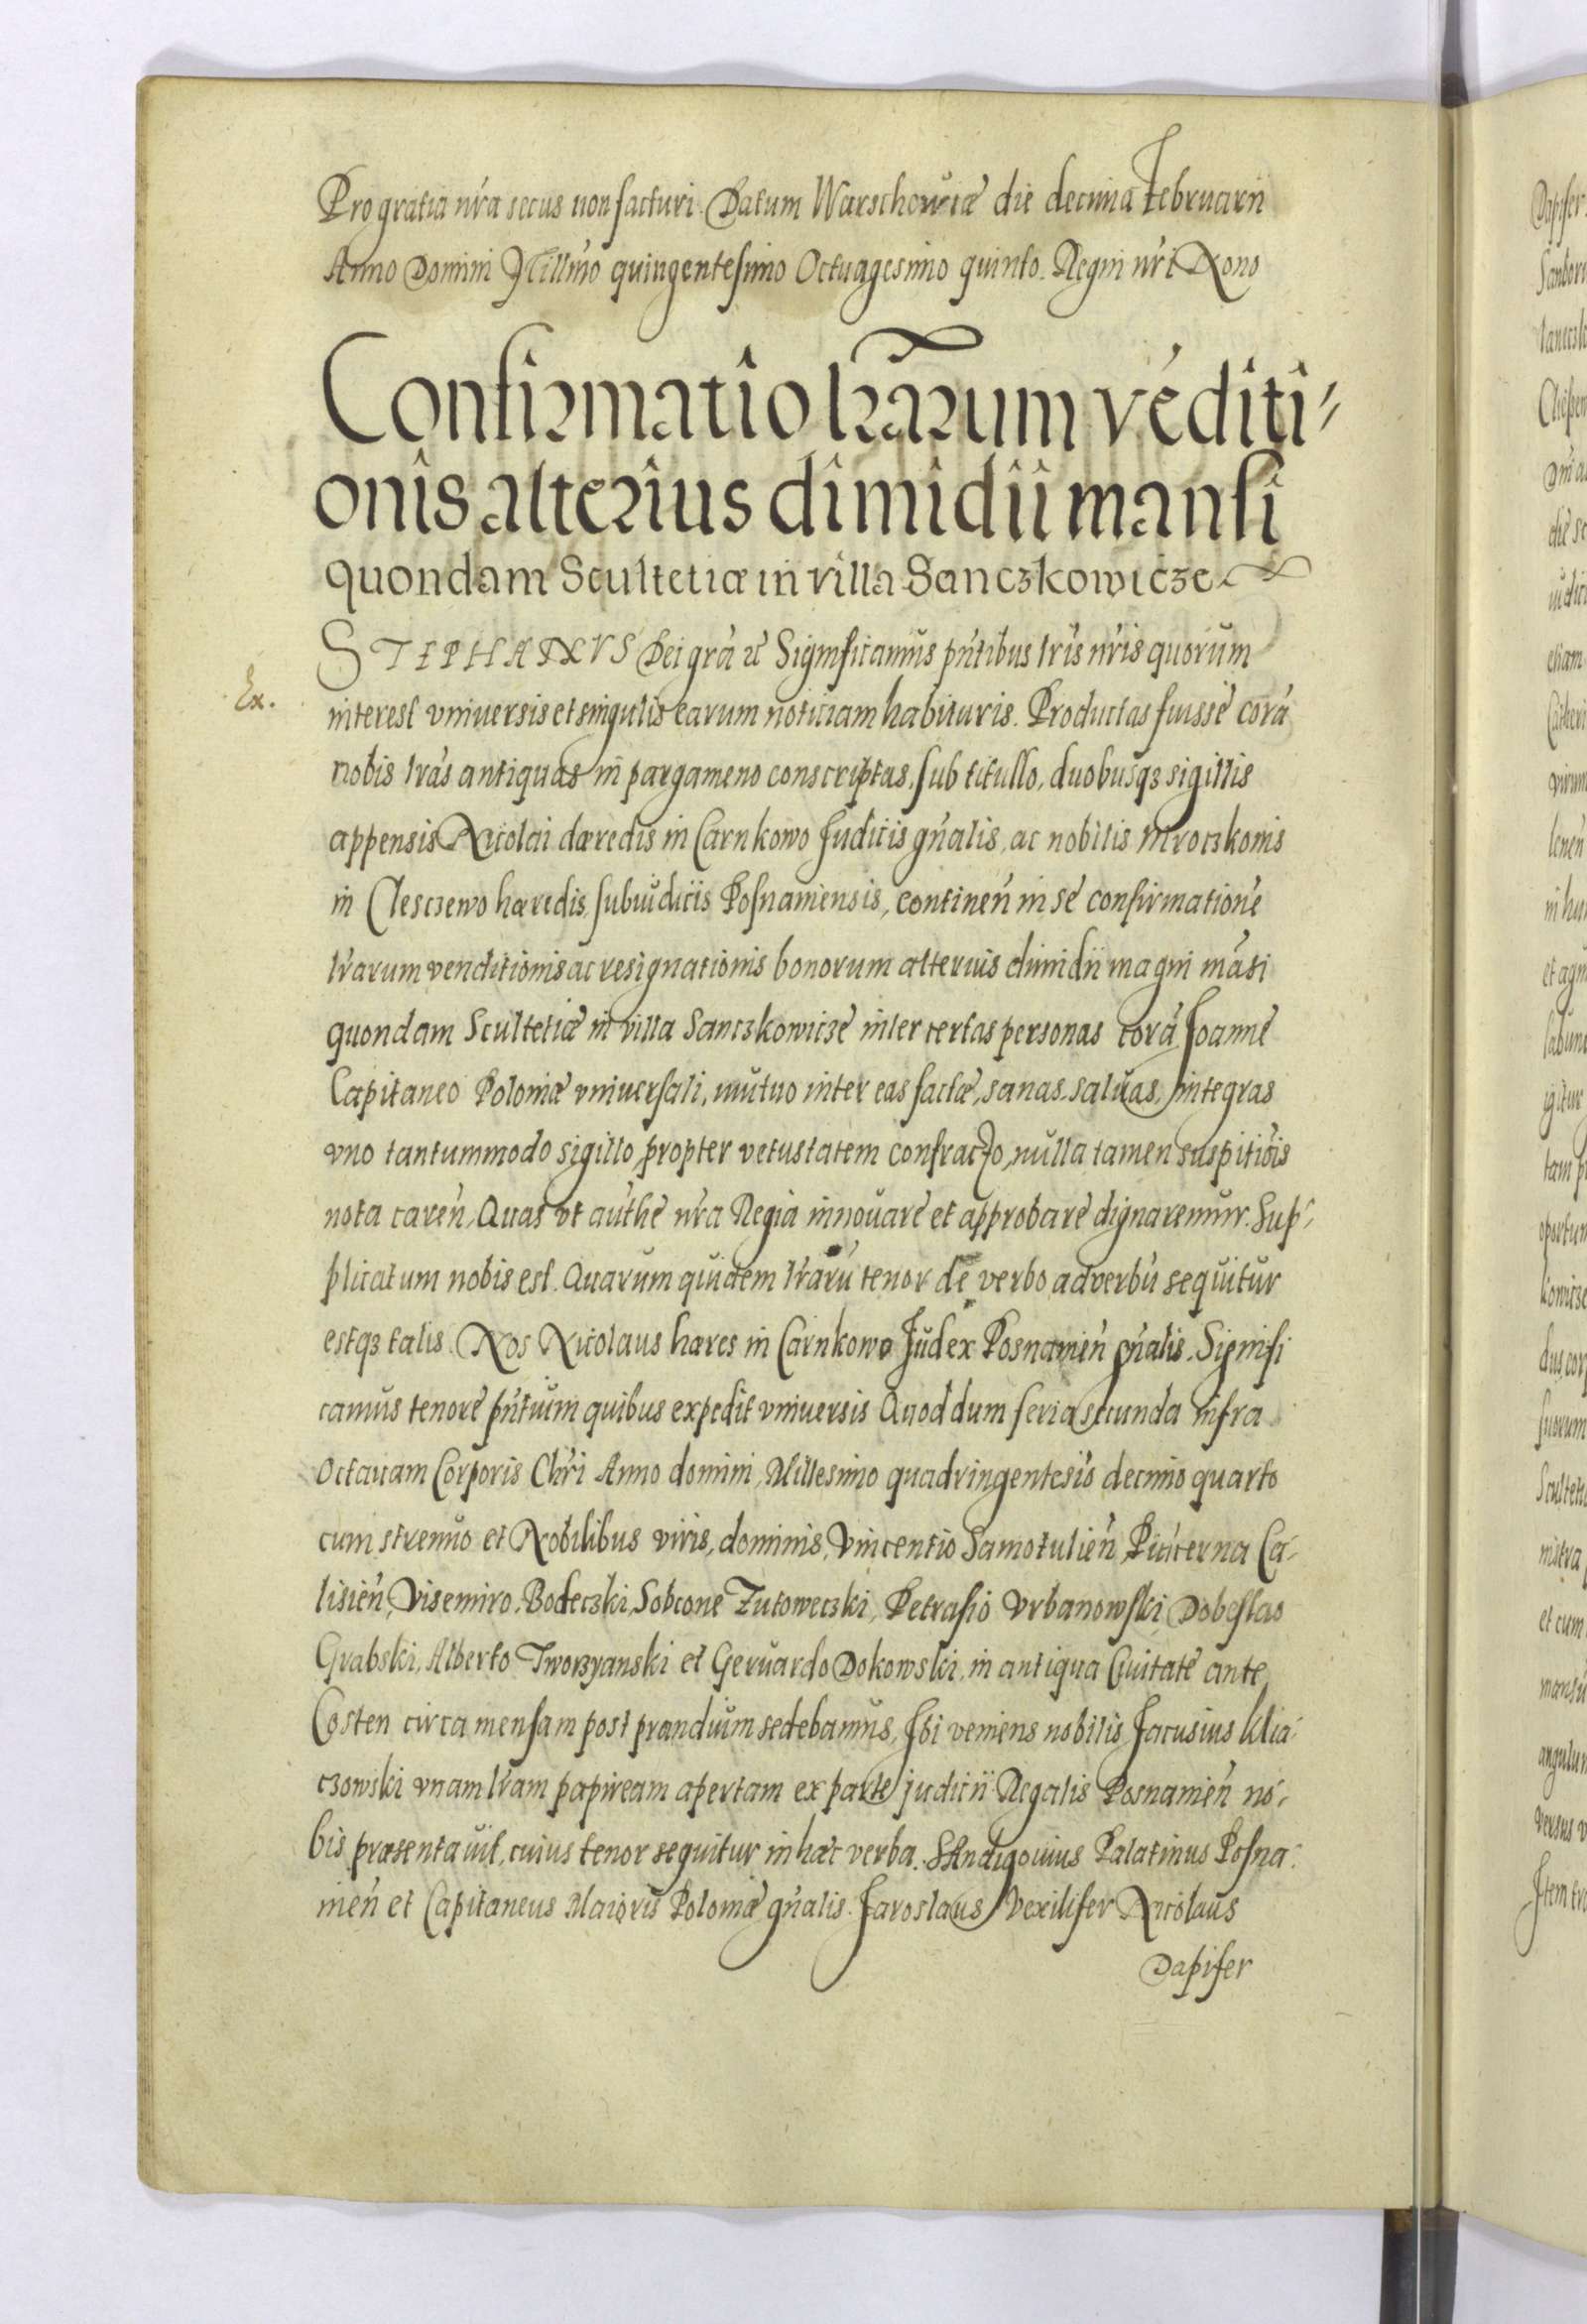 Pro gratia nr̃a secus non facturi. Datum Warschoviæ die decima Februarii
Anno Domini Millm̃o quingentesimo Octuagesimo quinto. Regni nr̃i Nono
Confirmatio lr̃arum vẽditi-
onis alterius dimidii mansi
quondam Scultetiæ in villa Sanczkowicze
STEPHANVS Dei grã etc Significamus pñtibus lr̃is nr̃is quorum
Ex.
interest vniuersis et singulis earum noticiam habituris. Productas fuisse corã
nobis lr̃as antiquas in pargameno conscriptas, sub titullo, duobusqꝫ sigillis
appensis Nicolai dæredis in Carnkowo Judicis gñalis, ac nobilis Mroczkonis
in Clesczewo hæredis, subiudicis Posnaniensis, contineñ in se confirmationẽ
lr̃arum venditionis ac resignationis bonorum alterius dimidii magni mãsi
quondam Scultetiæ in villa Sanczkowicze inter certas personas corã Joanne
Capitaneo Poloniæ vniuersali, mutuo inter eas factæ, sanas, saluas, integras
vno tantummodo sigillo propter vetustatem confracto, nulla tamen suspitiõis
nota careñ, Quas vt authẽ nr̃a Regia innouare et approbare dignaremur. Sup-
plicatum nobis est. Quarum quidem lr̃arũ tenor de verbo ad verbũ sequitur
estqꝫ talis. Nos Nicolaus hæres in Carnkowo Judex Posnanieñ gñalis. Signifi
camus tenore pñtium quibus expedit vniuersis Quod dum feria secunda infra
Octauam Corporis Chr̃i Anno domini, Millesimo quadringentesĩo decimo quarto
cum strenuo et Nobilibus viris, dominis, Vincentio Samotulieñ, Pincerna Ca-
lisieñ, Visemiro, Bodeczki, Sobcone Zutoweczki, Petrasio Vrbanowski Dobeslao
Grabski, Alberto Tworzyanski et Geruardo Dokowski, in antiqua Ciuitate ante
Costen circa mensam post prandium sedebamus, Ibi veniens nobilis Jacusius Klia-
czowski vnam lr̃am papiream apertam ex parte judicii Regalis Posnanieñ no-
bis præsentauit, cuius tenor sequitur in hæc verba. SAndigouius Palatinus Posna-
nieñ et Capitaneus Maioris Poloniæ gñalis. Jaroslaus Vexilifer Nicolaus
Dapifer